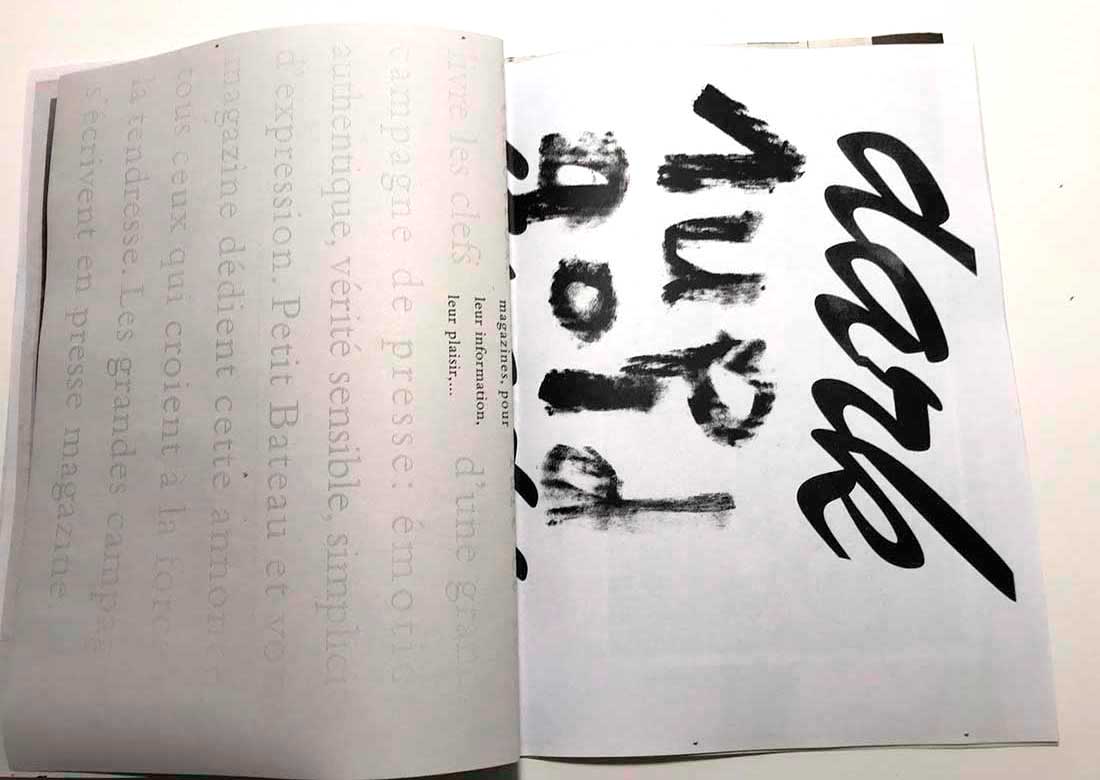 dark
magazines, pour
leur information,
leur plaisir,...
livre les clefs d'une gran
campagne de presse : émotio
authentique, vérité sensible, simplici
d'expression. Petit Bateau et vo
magazine dédient cette annonc
tous ceux qui croient à la force
la tendresse. Les grandes campag
s'écrivent en presse magazine.